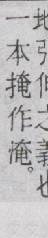 地引伸之義也
一本掩作淹。